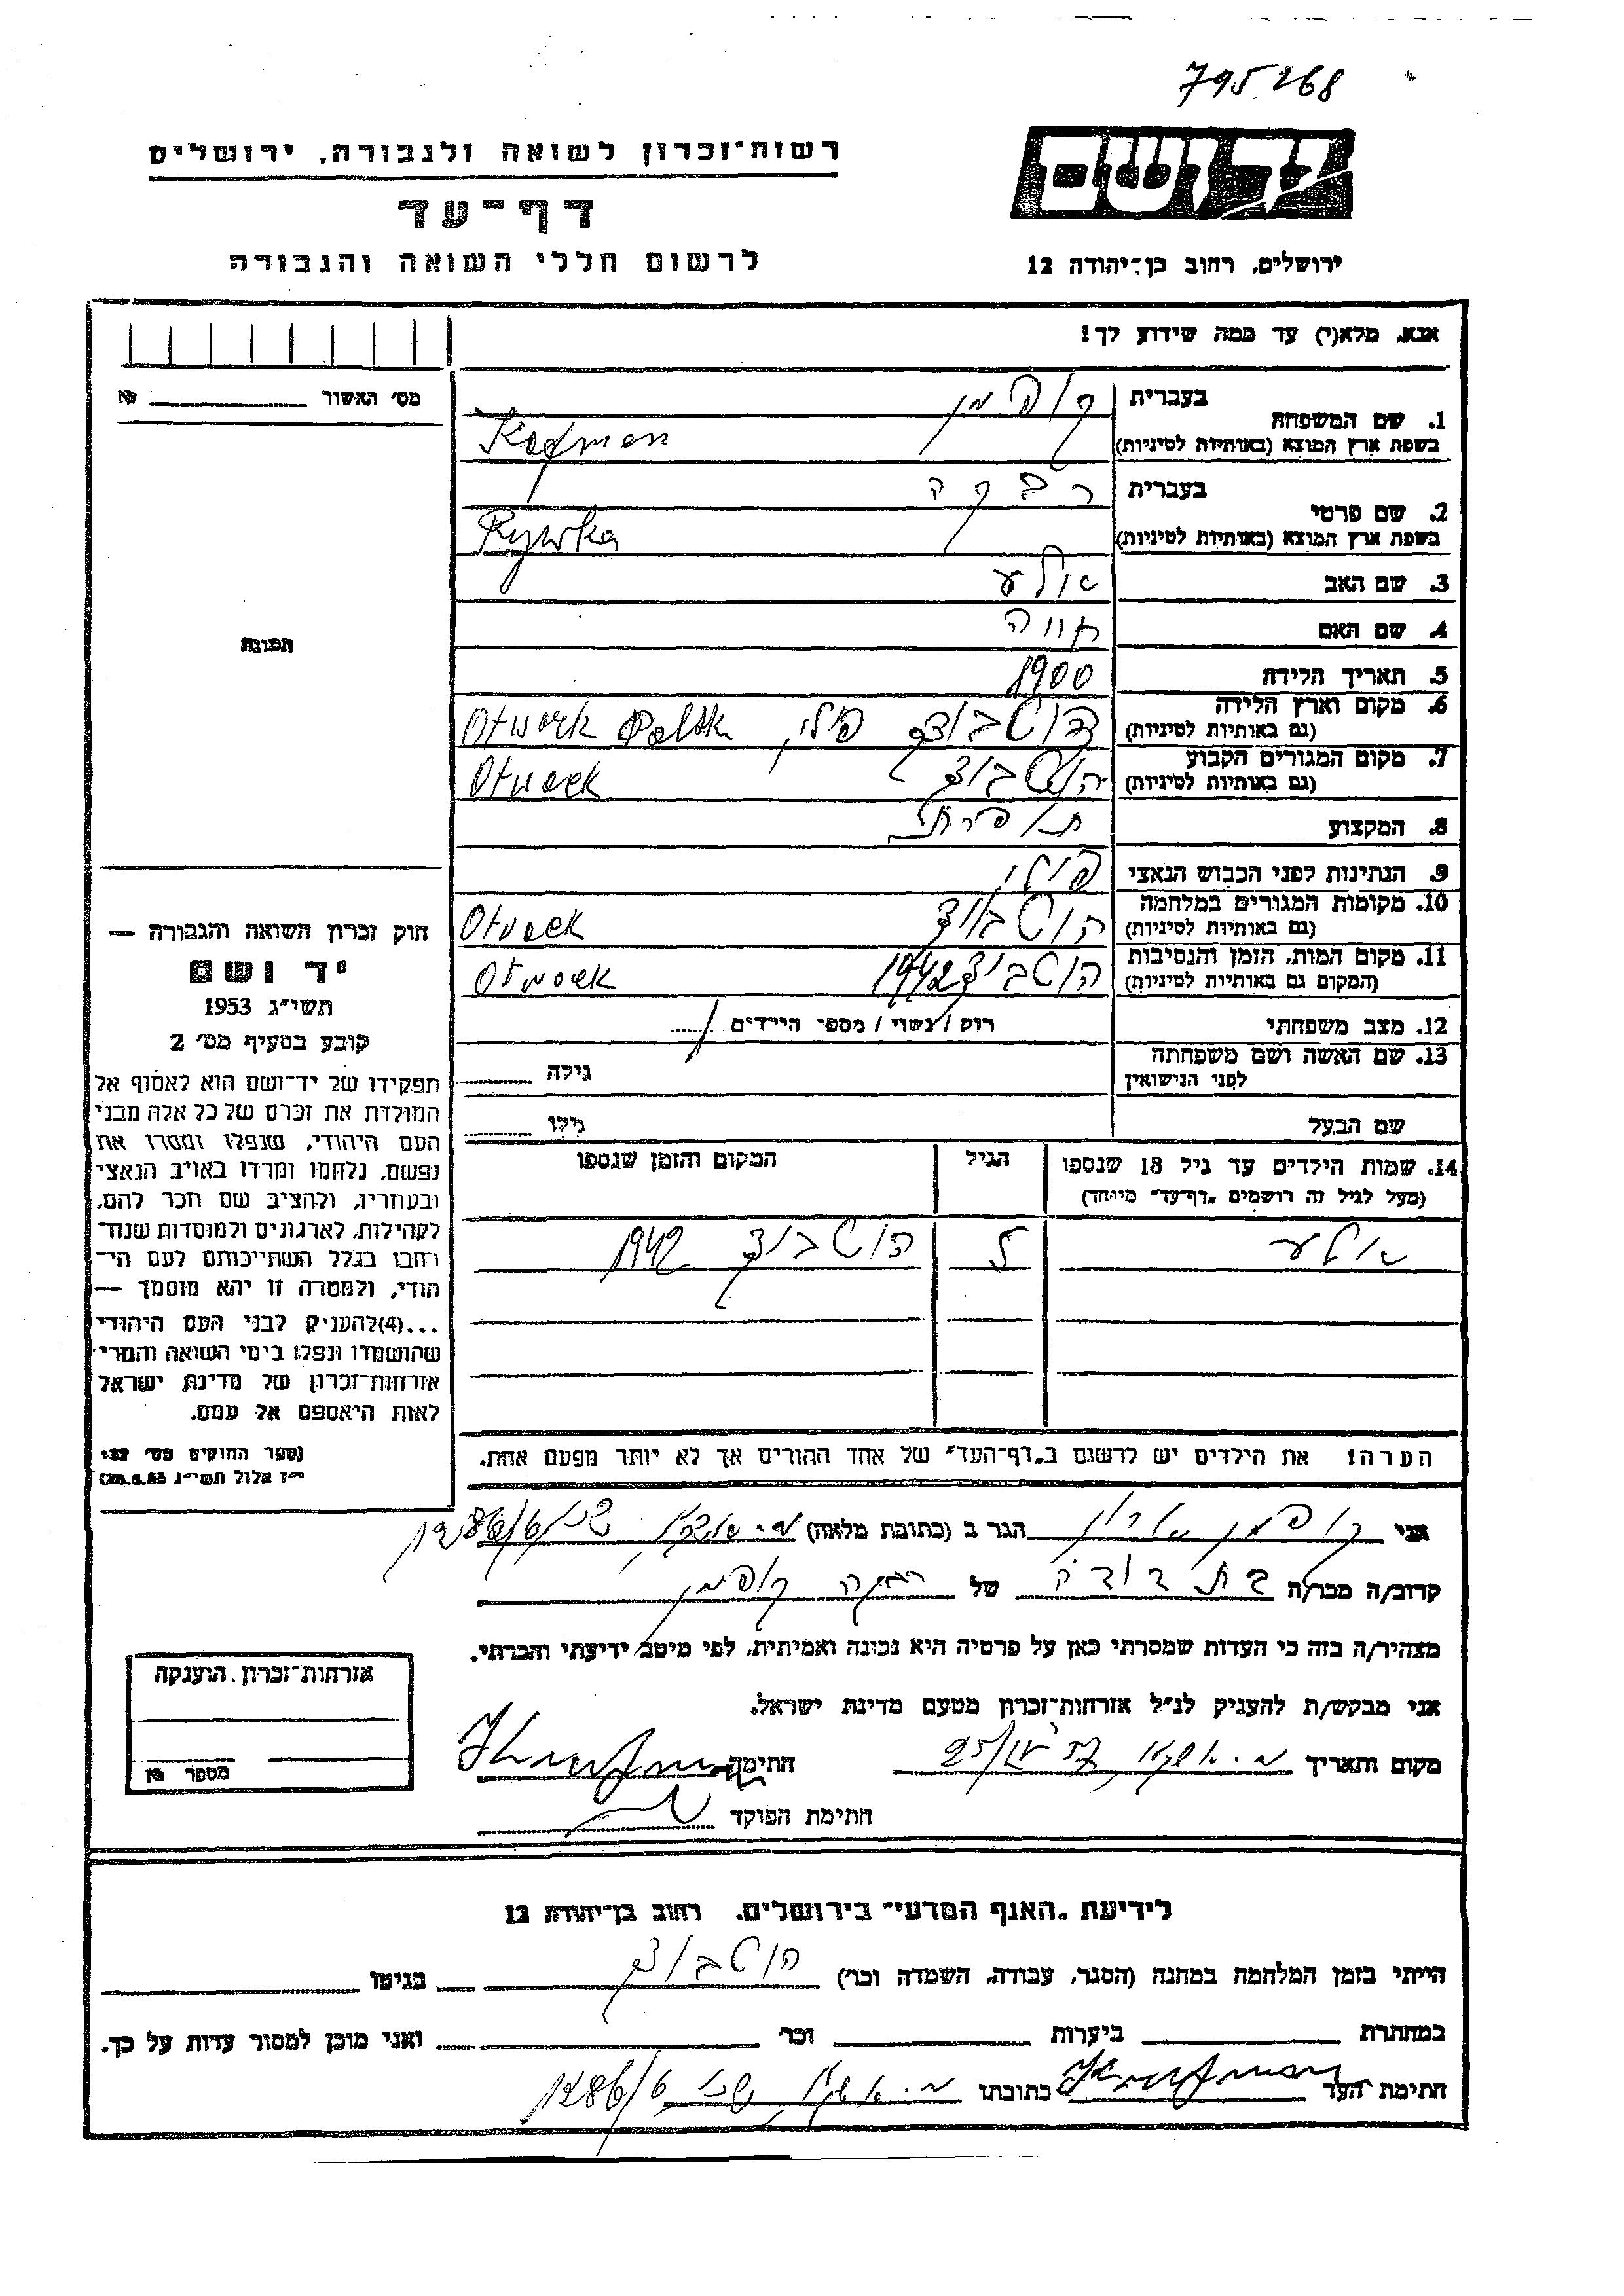 795268
יד ושם
רשות־זכרון לשואה ולגבורה, ירושלים
דף־עד
לרשום חללי השואה והגבורה
ירושלים, רחוב בן־יהודה 12
אנא, מלא(י) עד כמה שידוע לך!
מס׳ האשור
1. שם המשפחה
בעברית קופמן
בשפת ארץ המוצא (באותיות לטיניות) Kofman
2. שם פרטי
בעברית רבקה
בשפת ארץ המוצא (באותיות לטיניות) Rywka
3. שם האב
4. שם האם חווה
5. תאריך הלידה 1900
6. מקום וארץ הלידה
(גם באותיות לטיניות) פולין Otwock
7. מקום המגורים הקבוע
(גם באותיות לטיניות) Otwock
8. המקצוע תופרת
9. הנתינות לפני הכבוש הנאצי פולני
10. מקומות המגורים במלחמה
(גם באותיות לטיניות) Otwock
11. מקום המות, הזמן והנסיבות
(המקום גם באותיות לטיניות) 1942 Otwock
12. מצב משפחתי רווק / נשוי / מספר הילדים
13. שם האשה ושם משפחתה
לפני הנישואין גילה
שם הבעל גילו
14. שמות הילדים עד גיל 18 שנספו הגיל המקום והזמן שנספו
(מעל לגיל זה רושמים „דף־עד״ מיוחד)
1942
הערה! את הילדים יש לרשום ב„דף־העד״ של אחד ההורים אך לא יותר מפעם אחת.
התמונה
חוק זכרון השואה והגבורה —
יד ושם
תשי״ג 1953
קובע בסעיף מס׳ 2
תפקידו של יד־ושם הוא לאסוף אל
המולדת את זכרם של כל אלה מבני
העם היהודי, שנפלו ומסרו את
נפשם, נלחמו ומרדו באויב הנאצי
ובעוזריו, ולהציב שם וזכר להם,
לקהילות, לארגונים ולמוסדות שנח־
רבו בגלל השתייכותם לעם הי־
הודי, ולמטרה זו יהא מוסמך —
...(4)להעניק לבני העם היהודי
שהושמדו ונפלו בימי השואה והמרי
אזרחות־זכרון של מדינת ישראל
לאות היאספם אל עמם.
(ספר החוקים מס׳ 132
י״ז אלול תשי״ג 28.8.53)
אני קופמן הגר ב (כתובת מלאה)
קרוב/ה מכר/ה בת דודה של רבקה קופמן
מצהיר/ה בזה כי העדות שמסרתי כאן על פרטיה היא נכונה ואמיתית, לפי מיטב ידיעתי והכרתי.
אני מבקש/ת להעניק לנ״ל אזרחות־זכרון מטעם מדינת ישראל.
מקום ותאריך חתימה
חתימת הפוקד
אזרחות־זכרון הוענקה
מספר
לידיעת „האגף המדעי״ בירושלים, רחוב בן־יהודה 12
הייתי בזמן המלחמה במחנה (הסגר, עבודה, השמדה וכו׳) בגיטו
במחתרת ביערות וכו׳ ואני מוכן למסור עדות על כך.
חתימת העד כתובתו